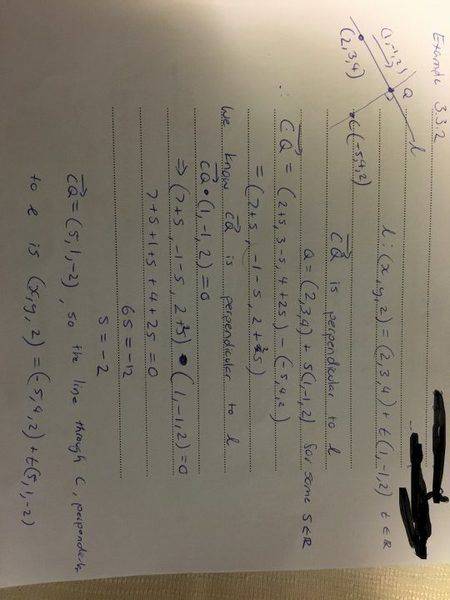 Example 3.3.2
(1,-1,2)
(2,3,4)
Q
l
C(-5,4,2)
l: (x,y,z) = (2,3,4) + t(1,-1,2) t∈ℝ
CQ is perpendicular to l
Q = (2,3,4) + s(1,-1,2) for some s∈ℝ
∴ CQ = (2+s, 3-s, 4+2s) - (-5,4,2)
= (7+s, -1-s, 2+2s)
We know CQ is perpendicular to l
CQ • (1,-1,2) = 0
⇒ (7+s, -1-s, 2+2s) • (1,-1,2) = 0
7+s+1+s+4+2s = 0
6s = -12
s = -2
CQ = (5,1,-2), so the line through C, perpendicular
to l is (x,y,z) = (-5,4,2) + t(5,1,-2)